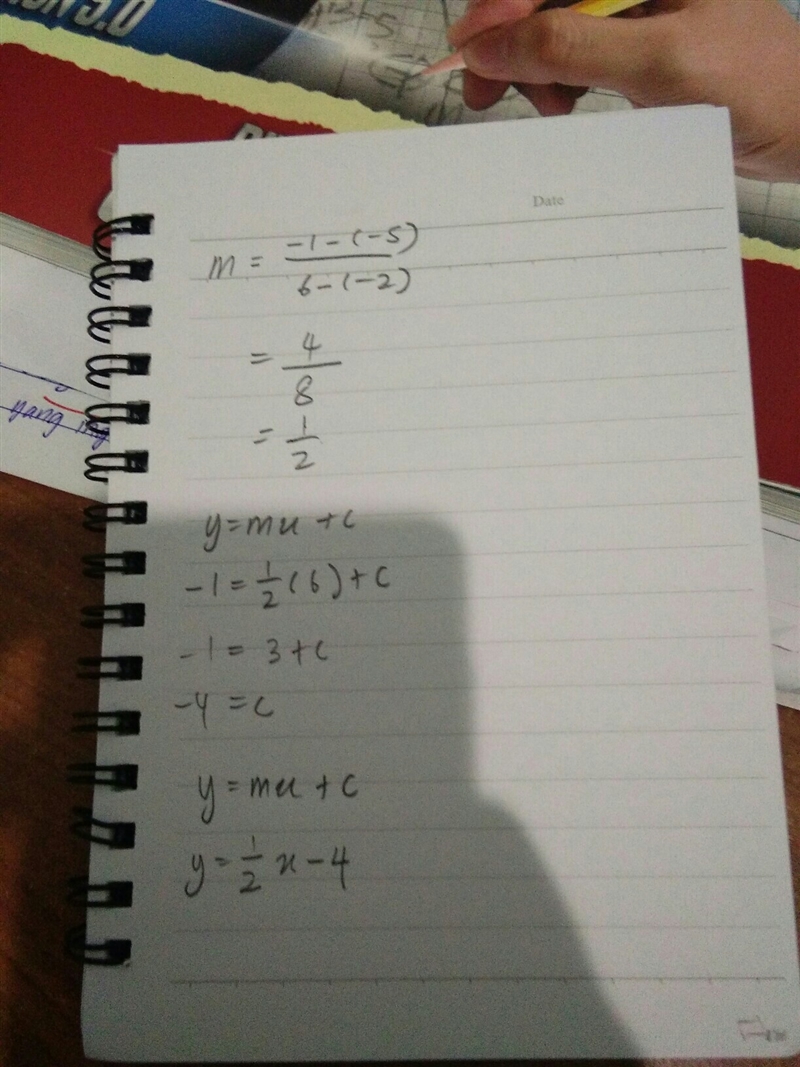 ION 5.0
Date
m = \frac{-1-(-5)}{6-(-2)}
= \frac{4}{8}
= \frac{1}{2}
yang
y=mx+c
-1=\frac{1}{2}(6)+c
-1=3+c
-4=c
y=mx+c
y=\frac{1}{2}x-4